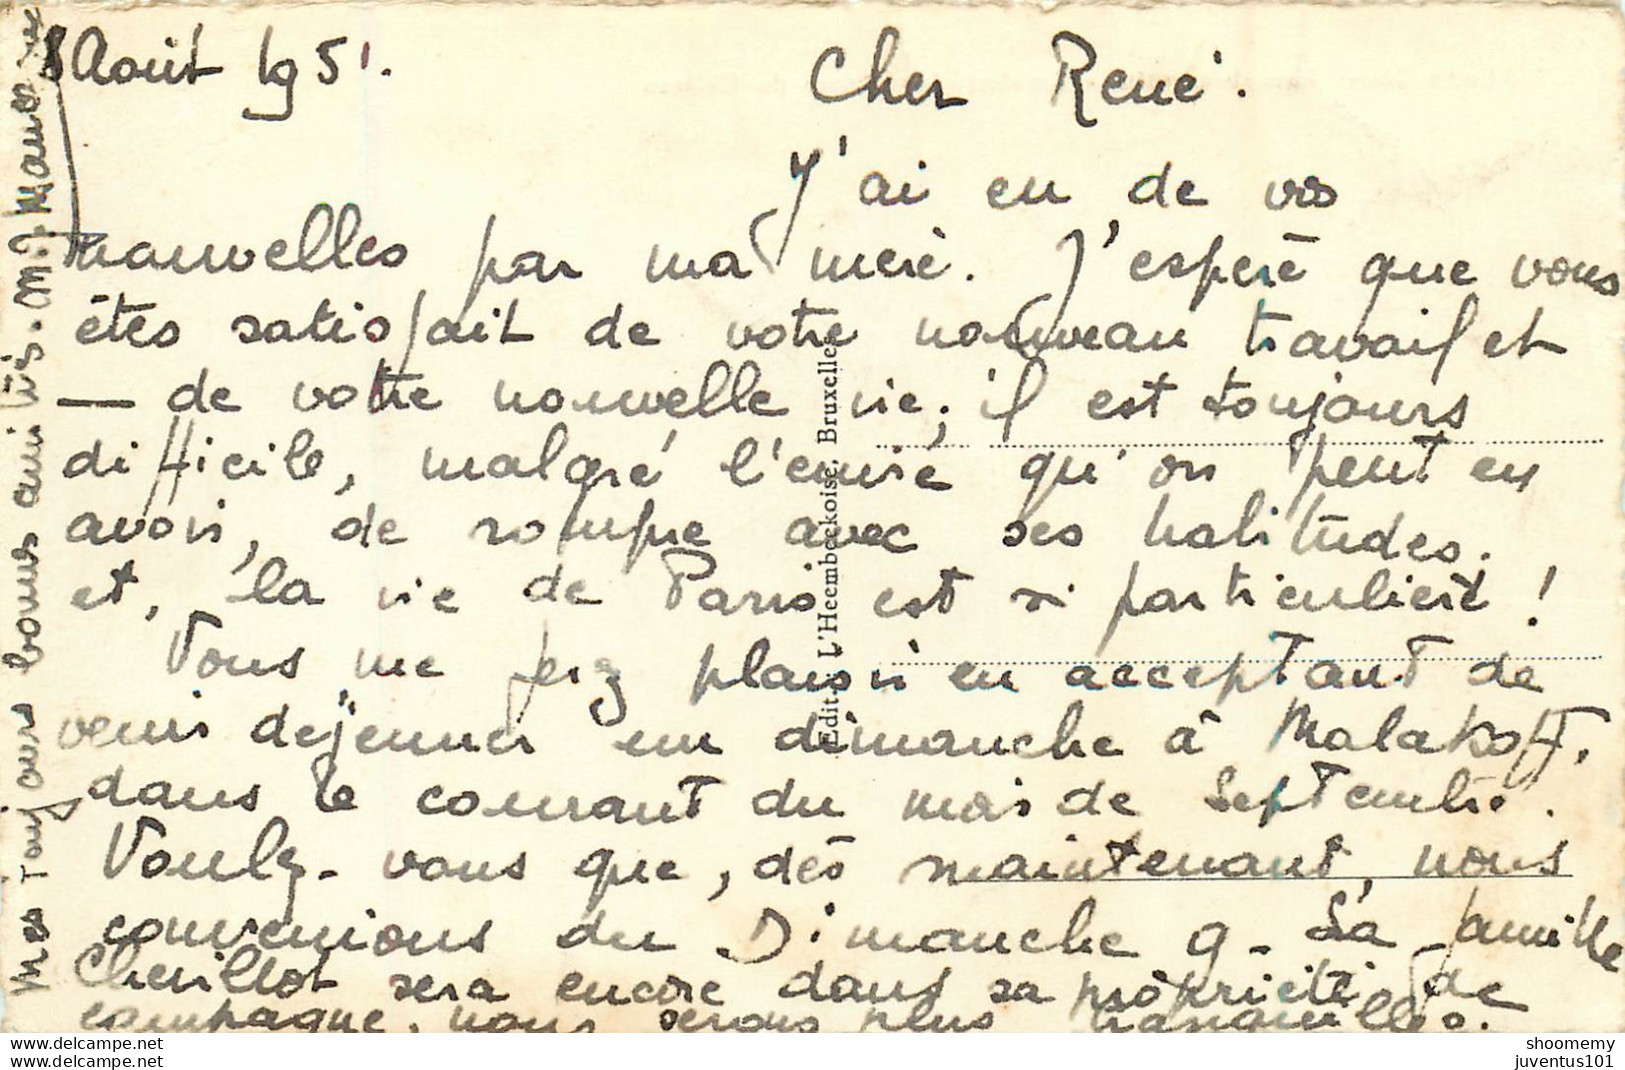 8 Août 1951.
Cher René.
J'ai eu de vos
nouvelles par ma mère. J'espère que vous
êtes satisfait de votre nouveau travail et
— de votre nouvelle vie; il est toujours
difficile, malgré l'envie qu'on peut en
avoir, de rompre avec ses habitudes.
et, la vie de Paris est si particulière !
Vous me ferez plaisir en acceptant de
venir déjeuner un dimanche à Malakoff,
dans le courant du mois de Septembre.
Voulez-vous que, dès maintenant, nous
convenions du Dimanche 9 - La famille
Chevillot sera encore dans sa propriété de
campagne, nous serons plus tranquilles.
Mes toujours bonnes amitiés. M. J.
Edit. L'Heembeckoise, Bruxelles
www.delcampe.net
shoomemy
juventus101